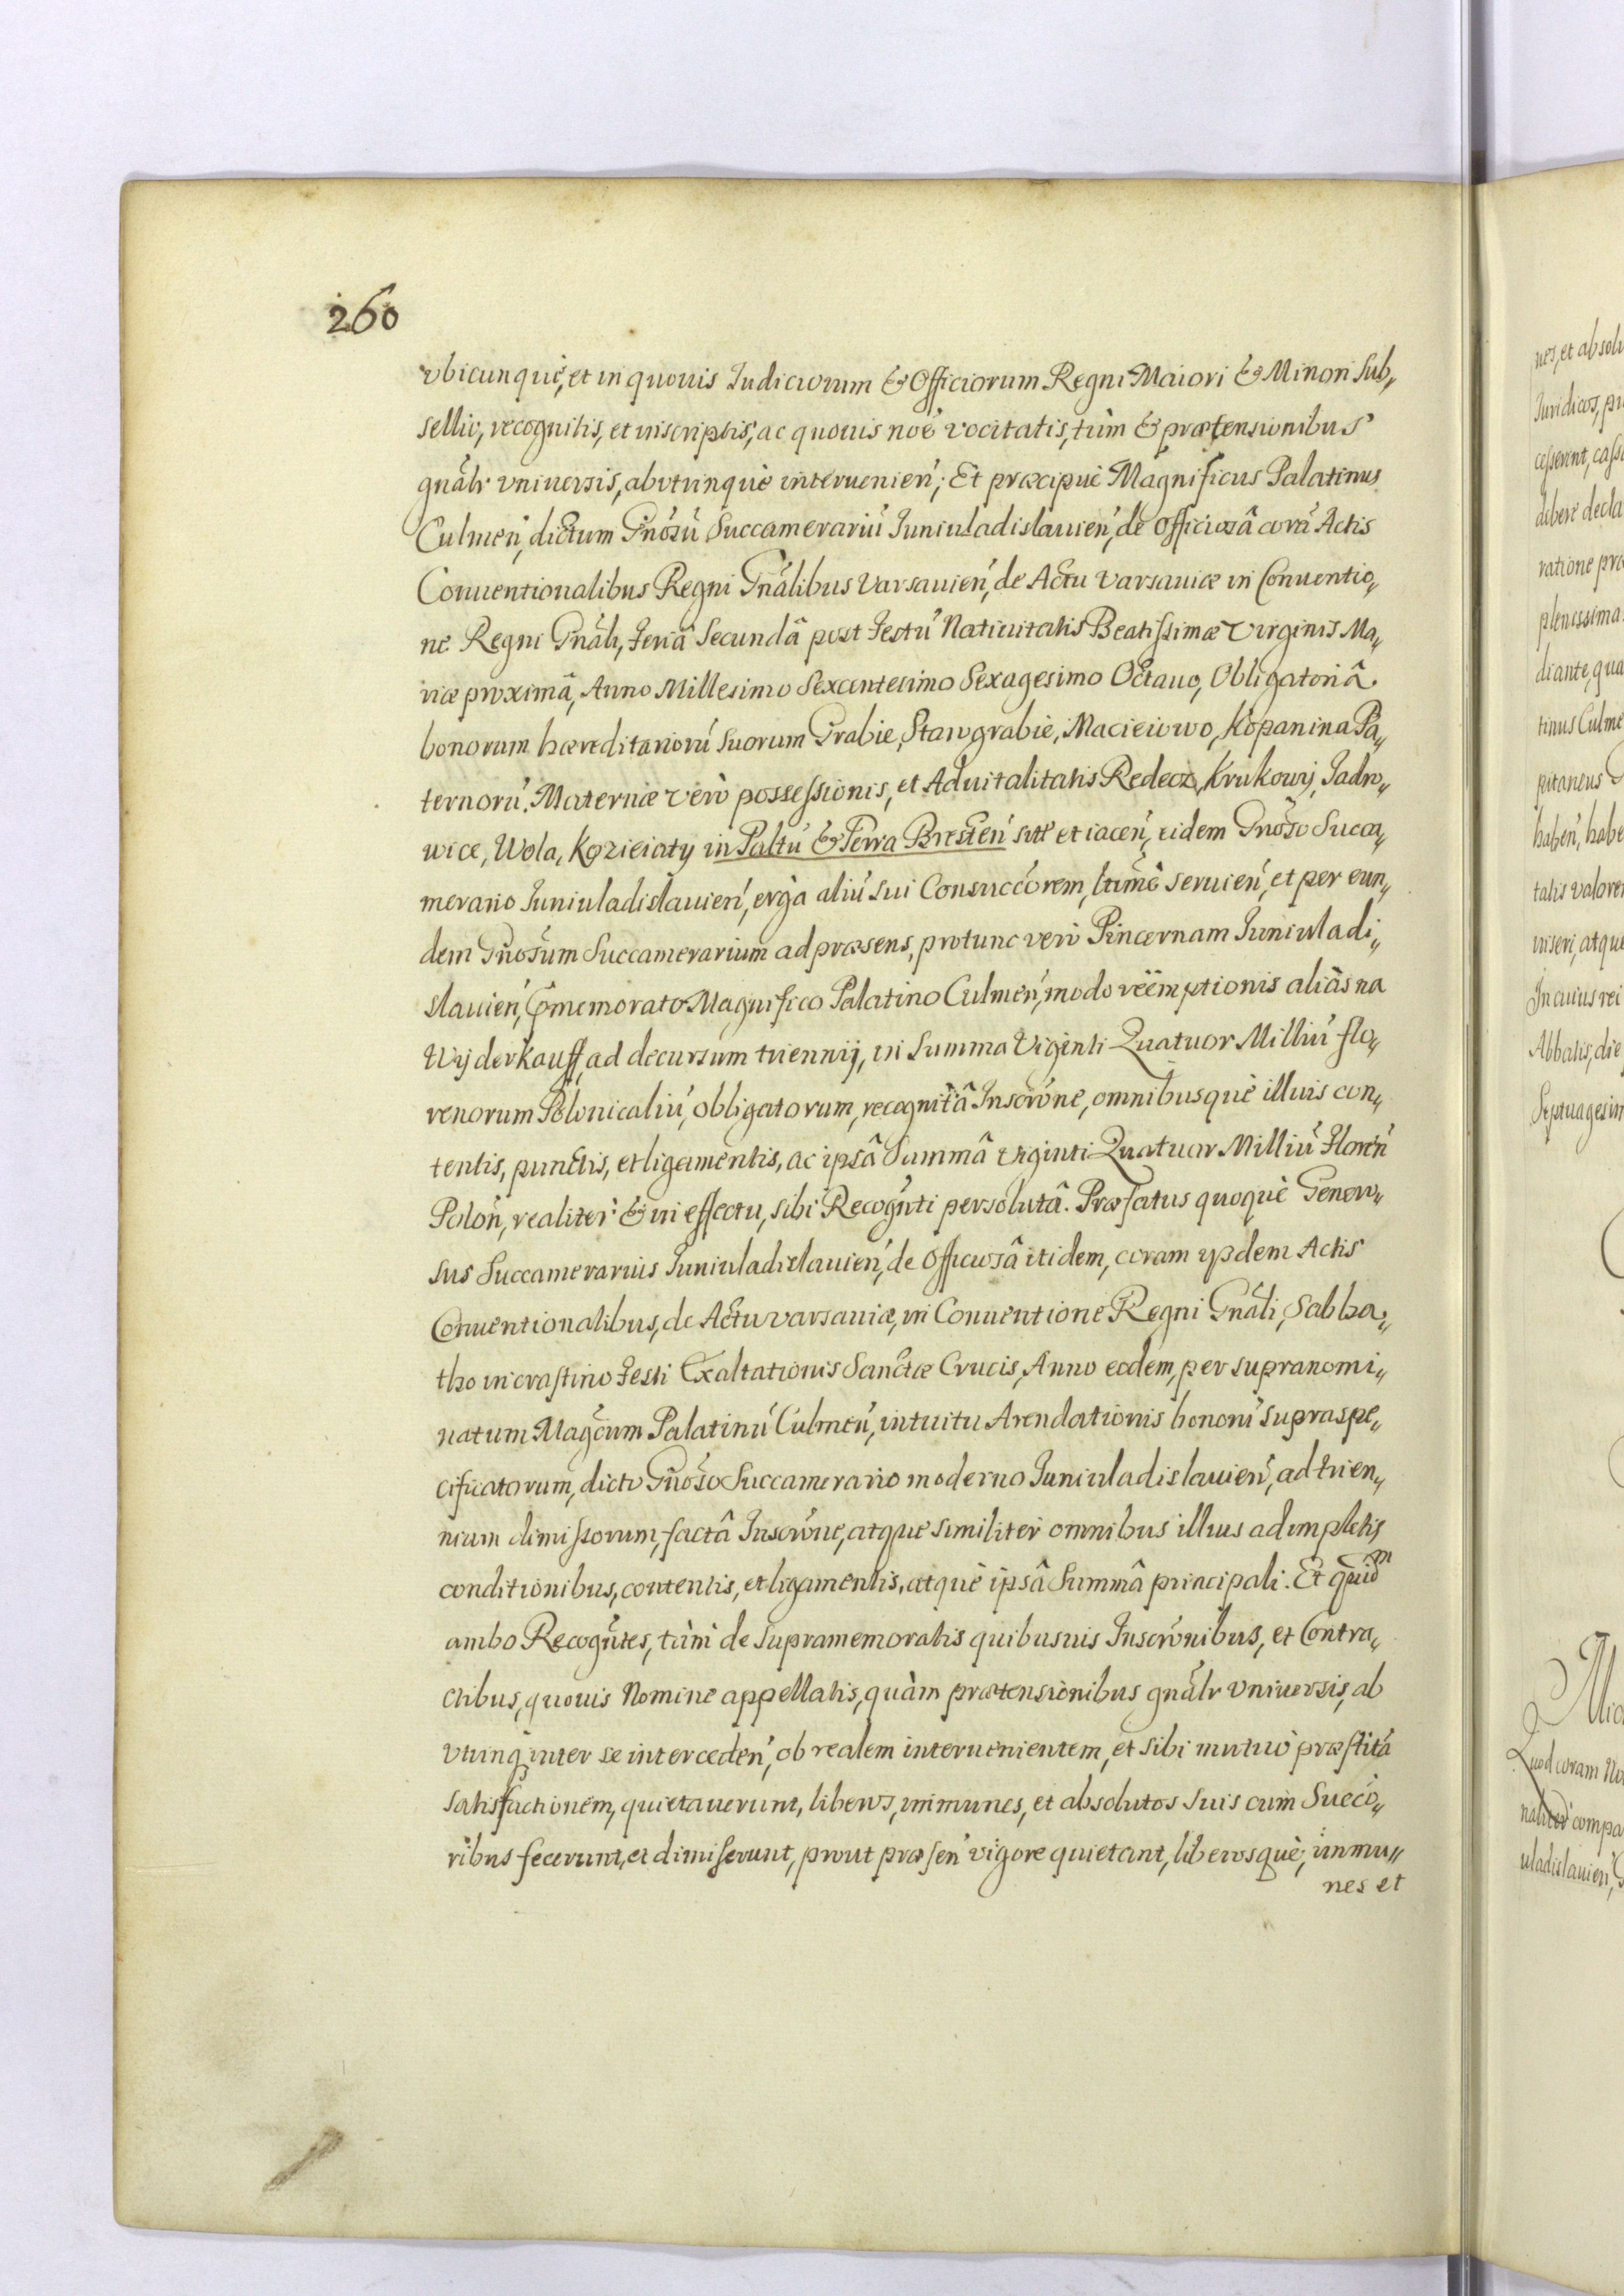 260
vbicunquè, et in quouis Iudiciorum & Officiorum Regni Maiori & Minori Sub„
sellio, recognitis, et inscriptis, ac quouis noe vocitatis, tùm & prætensionibus
gnâlr vniuersis, abvtrinquè interuenień; Et præcipuè Magnificus Palatinus
Culmeń, dictum Gnosú Succamerariú Iuniuladislauień, de Officiosâ corá Actis
Conuentionalibus Regni Gnâlibus Varsauień, de Actu Varsauiæ in Conuentio„
ne Regni Gnâli, Feriâ Secundâ post Festú Natiuitatis Beatissimæ Virginis Ma„
riæ proximâ, Anno Millesimo Sexcentesimo Sexagesimo Octauo, Obligatoriâ
bonorum hæreditariorú suorum Grabie, Stawgrabie, Macieiowo, Kopanina Pa„
ternorú. Maternæ verò possessionis, et Aduitalitatis Redecz, Krukowy, Jadro„
wice, Wola, Kozieiaty in Paltú & Terra Bresteń sitè et iaceń, eidem Gnoso Succa„
merario Iuniuladislauień, ergà aliú sui Consuccorem, ltimè seruień, et per eun„
dem Gnosum Succamerarium ad præsens, protunc verò Pincernam Iuniuladi„
slauień, Comemorato Magnifico Palatino Culmeń, modo reëmptionis aliàs na
Wyderkauff, ad decursum triennij, in Summa Viginti Quatuor Milliú flo„
renorum Polonicaliú, obligatorum, recognitâ Inscrone, omnibusquè illius con„
tentis, punctis, et ligamentis, ac ipsâ Summâ Viginti Quatuor Milliú Floreń
Poloń, realiter & in effectu, sibi Recognti persolutâ. Præfatus quoquè Genero„
sus Succamerarius Iuniuladislauień, de Officiosâ itidem, coram ijsdem Actis
Conuentionalibus, de Actu varsauiæ, in Conuentione Regni Gnâli, Sabba„
tho in crastino Festi Exaltationis Sanctæ Crucis, Anno eodem, per supranomi„
natum Magcum Palatinú Culmeń, intuitu Arendationis bonorú supraspe„
cificatorum, dicto Gnoso Succamerario moderno Iuniuladislauień, ad trien„
nium dimissorum, factâ Inscrone, atque similiter omnibus illius adimpletis
conditionibus, contentis, et ligamentis, atquè ipsâ Summâ principali. Et quidm
ambo Recogntes, tùm de supramemoratis quibusuis Inscronibus, et Contra„
ctibus, quouis Nomine appellatis, quàm prætensionibus gnâlr vniuersis, ab
vtrinq inter se intercedeń, ob realem interuenientem, et sibi mutuò præstitâ
satisfactionem, quietauerunt, liberos, immunes, et absolutos suis cum Succo„
ribus fecerunt, et dimiserunt, prout præseń vigore quietant, liberosquè, immu„
nes et
nes, et absolu
Iuridicos, pu
cesserint, cass
debere decla
ratione præ
plenissima
diante, qua
tinus Culme
pitaneus G
habeń, habe
talis valore
inseri, atque
In cuius rei
Abbatis, die
Septuagesim
Quod coram No
naliter compa
uladislauień, G